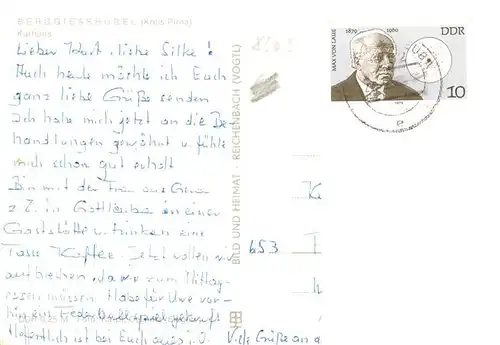 BERGGIESSHÜBEL (Kreis Pirna)
Kurhaus
Lieber Kurt, liebe Silke!
Auch heute möchte ich Euch
ganz liebe Grüße senden
Ich habe mich jetzt an die Be-
handlungen gewöhnt u. fühle
mich schon gut erholt
Bin mit der Frau aus Gera
z. Z. in Gottleuba in einer
Gaststätte u. trinken eine
Tasse Kaffee. Jetzt wollen wir
aufbrechen, da wir zum Mittag-
essen müssen. Habe für Uwe vor-
hin ein Federballspiel gekauft
Hoffentlich ist bei Euch alles i. O. Viele Grüße an
BILD UND HEIMAT · REICHENBACH (VOGTL)
MAX VON LAUE
1879 1960
DDR
10
653